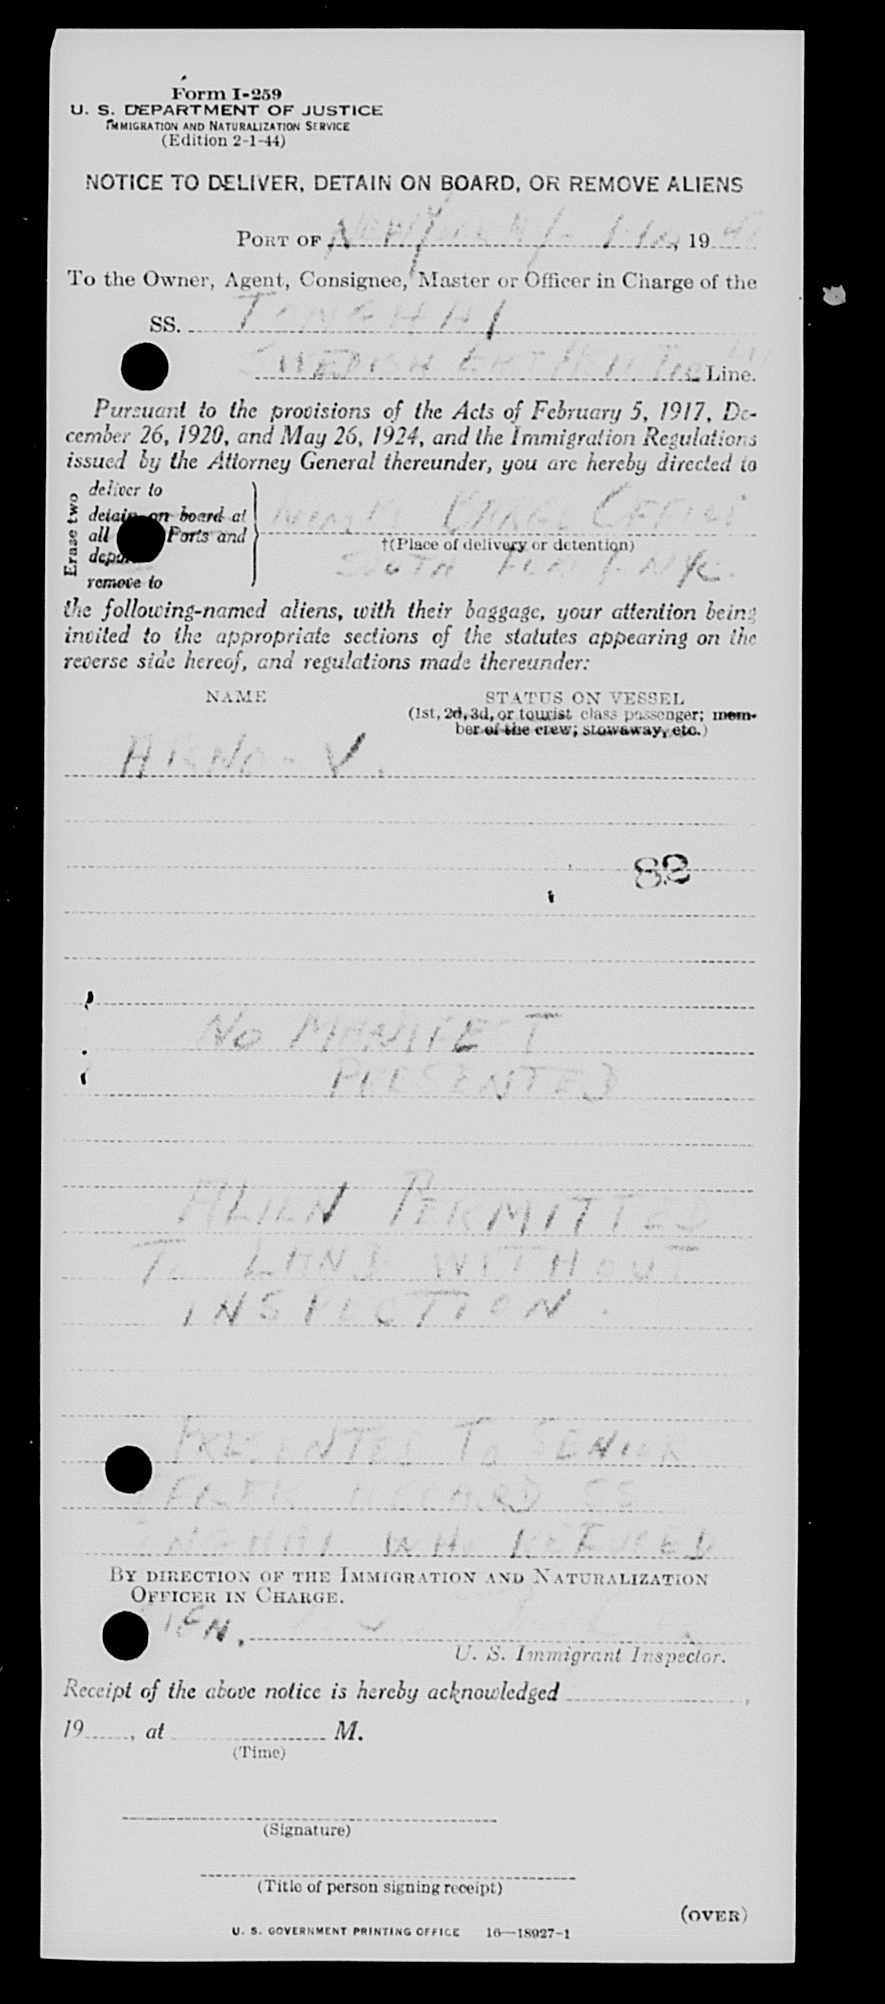 Form I-259
U. S. DEPARTMENT OF JUSTICE
IMMIGRATION AND NATURALIZATION SERVICE
(Edition 2-1-44)
NOTICE TO DELIVER, DETAIN ON BOARD, OR REMOVE ALIENS
PORT OF New York, 19
To the Owner, Agent, Consignee, Master or Officer in Charge of the
SS. TONGHAI
SWEDISH EAST Line.
Pursuant to the provisions of the Acts of February 5, 1917, De-
cember 26, 1920, and May 26, 1924, and the Immigration Regulations
issued by the Attorney General thereunder, you are hereby directed to
Erase two
deliver to
detain on board at
all Ports and
remove to
BARGE OFFICE
†(Place of delivery or detention)
SOUTH FERRY NYC.
the following-named aliens, with their baggage, your attention being
invited to the appropriate sections of the statutes appearing on the
reverse side hereof, and regulations made thereunder:
NAME STATUS ON VESSEL
(1st, 2d, 3d, or tourist class passenger; mem-
ber of the crew; stowaway, etc.)
82
NO MANIFEST
PRESENTED
ALIEN PERMITTED
TO LAND WITHOUT
INSPECTION.
PRESENTED TO SENIOR
SS
WHO REFUSED
BY DIRECTION OF THE IMMIGRATION AND NATURALIZATION
OFFICER IN CHARGE.
U. S. Immigrant Inspector.
Receipt of the above notice is hereby acknowledged ,
19 , at M.
(Time)
(Signature)
(Title of person signing receipt)
(OVER)
U. S. GOVERNMENT PRINTING OFFICE 16—18927-1